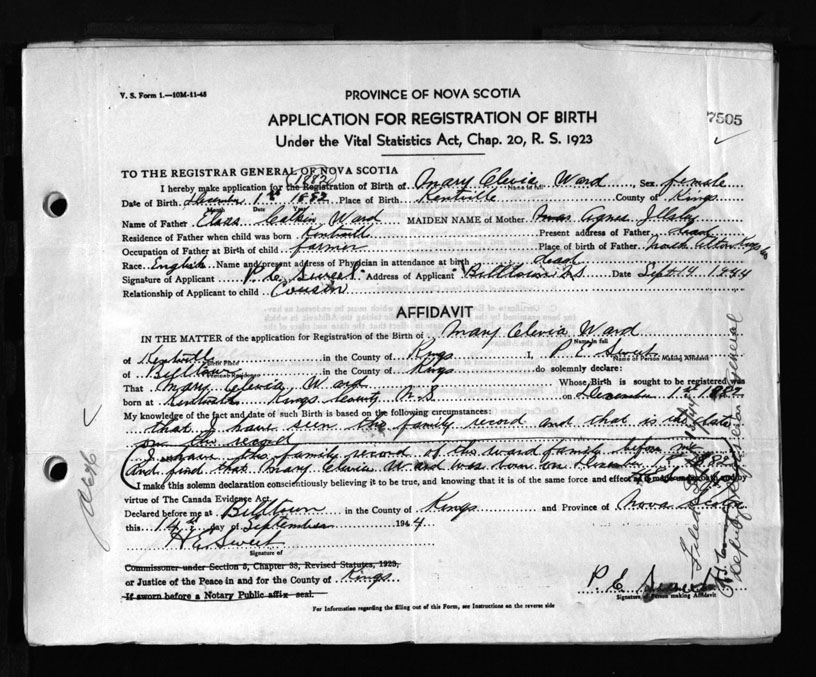 V. S. Form 1.—10M-11-43
PROVINCE OF NOVA SCOTIA
APPLICATION FOR REGISTRATION OF BIRTH
7505
Under the Vital Statistics Act, Chap. 20, R. S. 1923
TO THE REGISTRAR GENERAL OF NOVA SCOTIA
1882
I hereby make application for the Registration of Birth of Mary Clevia Ward Sex female
Name in full
Date of Birth December 1st 1882 Place of Birth Kentville County of Kings
Date Year
Name of Father Calkin Ward MAIDEN NAME of Mother Agnes
Residence of Father when child was born Kentville Present address of Father dead
Occupation of Father at Birth of child farmer Place of birth of Father North Alton Kings Co
Race English Name and present address of Physician in attendance at birth dead
Signature of Applicant P. E. Sweet Address of Applicant Billtown N S Date Sept 14 1944
Relationship of Applicant to child Cousin
AFFIDAVIT
IN THE MATTER of the application for Registration of the Birth of Mary Clevia Ward
Name in full
of Kentville in the County of Kings I, P E Sweet
Birth Place Name of Person Making Affidavit
of Billtown in the County of Kings do solemnly declare:
That Mary Clevia Ward Whose Birth is sought to be registered was
born at Kentville Kings County N. S on December 1st 1882
My knowledge of the fact and date of such Birth is based on the following circumstances:
that I have seen the family record and that is the date
on the record
I have the family record of the Ward family before me
and find that Mary Clevia Ward was born on December 1st 1882
I make this solemn declaration conscientiously believing it to be true, and knowing that it is of the same force and effect as if made under oath and by
virtue of The Canada Evidence Act.
Declared before me at Billtown in the County of Kings and Province of Nova Scotia
this 14th day of September 1944
H E Sweet
Signature of
Commissioner under Section 3, Chapter 38, Revised Statutes, 1923,
or Justice of the Peace in and for the County of Kings
If sworn before a Notary Public affix seal.
P. E Sweet
Signature of Person making Affidavit
For Information regarding the filling out of this Form, see Instructions on the reverse side
Deputy Registrar General